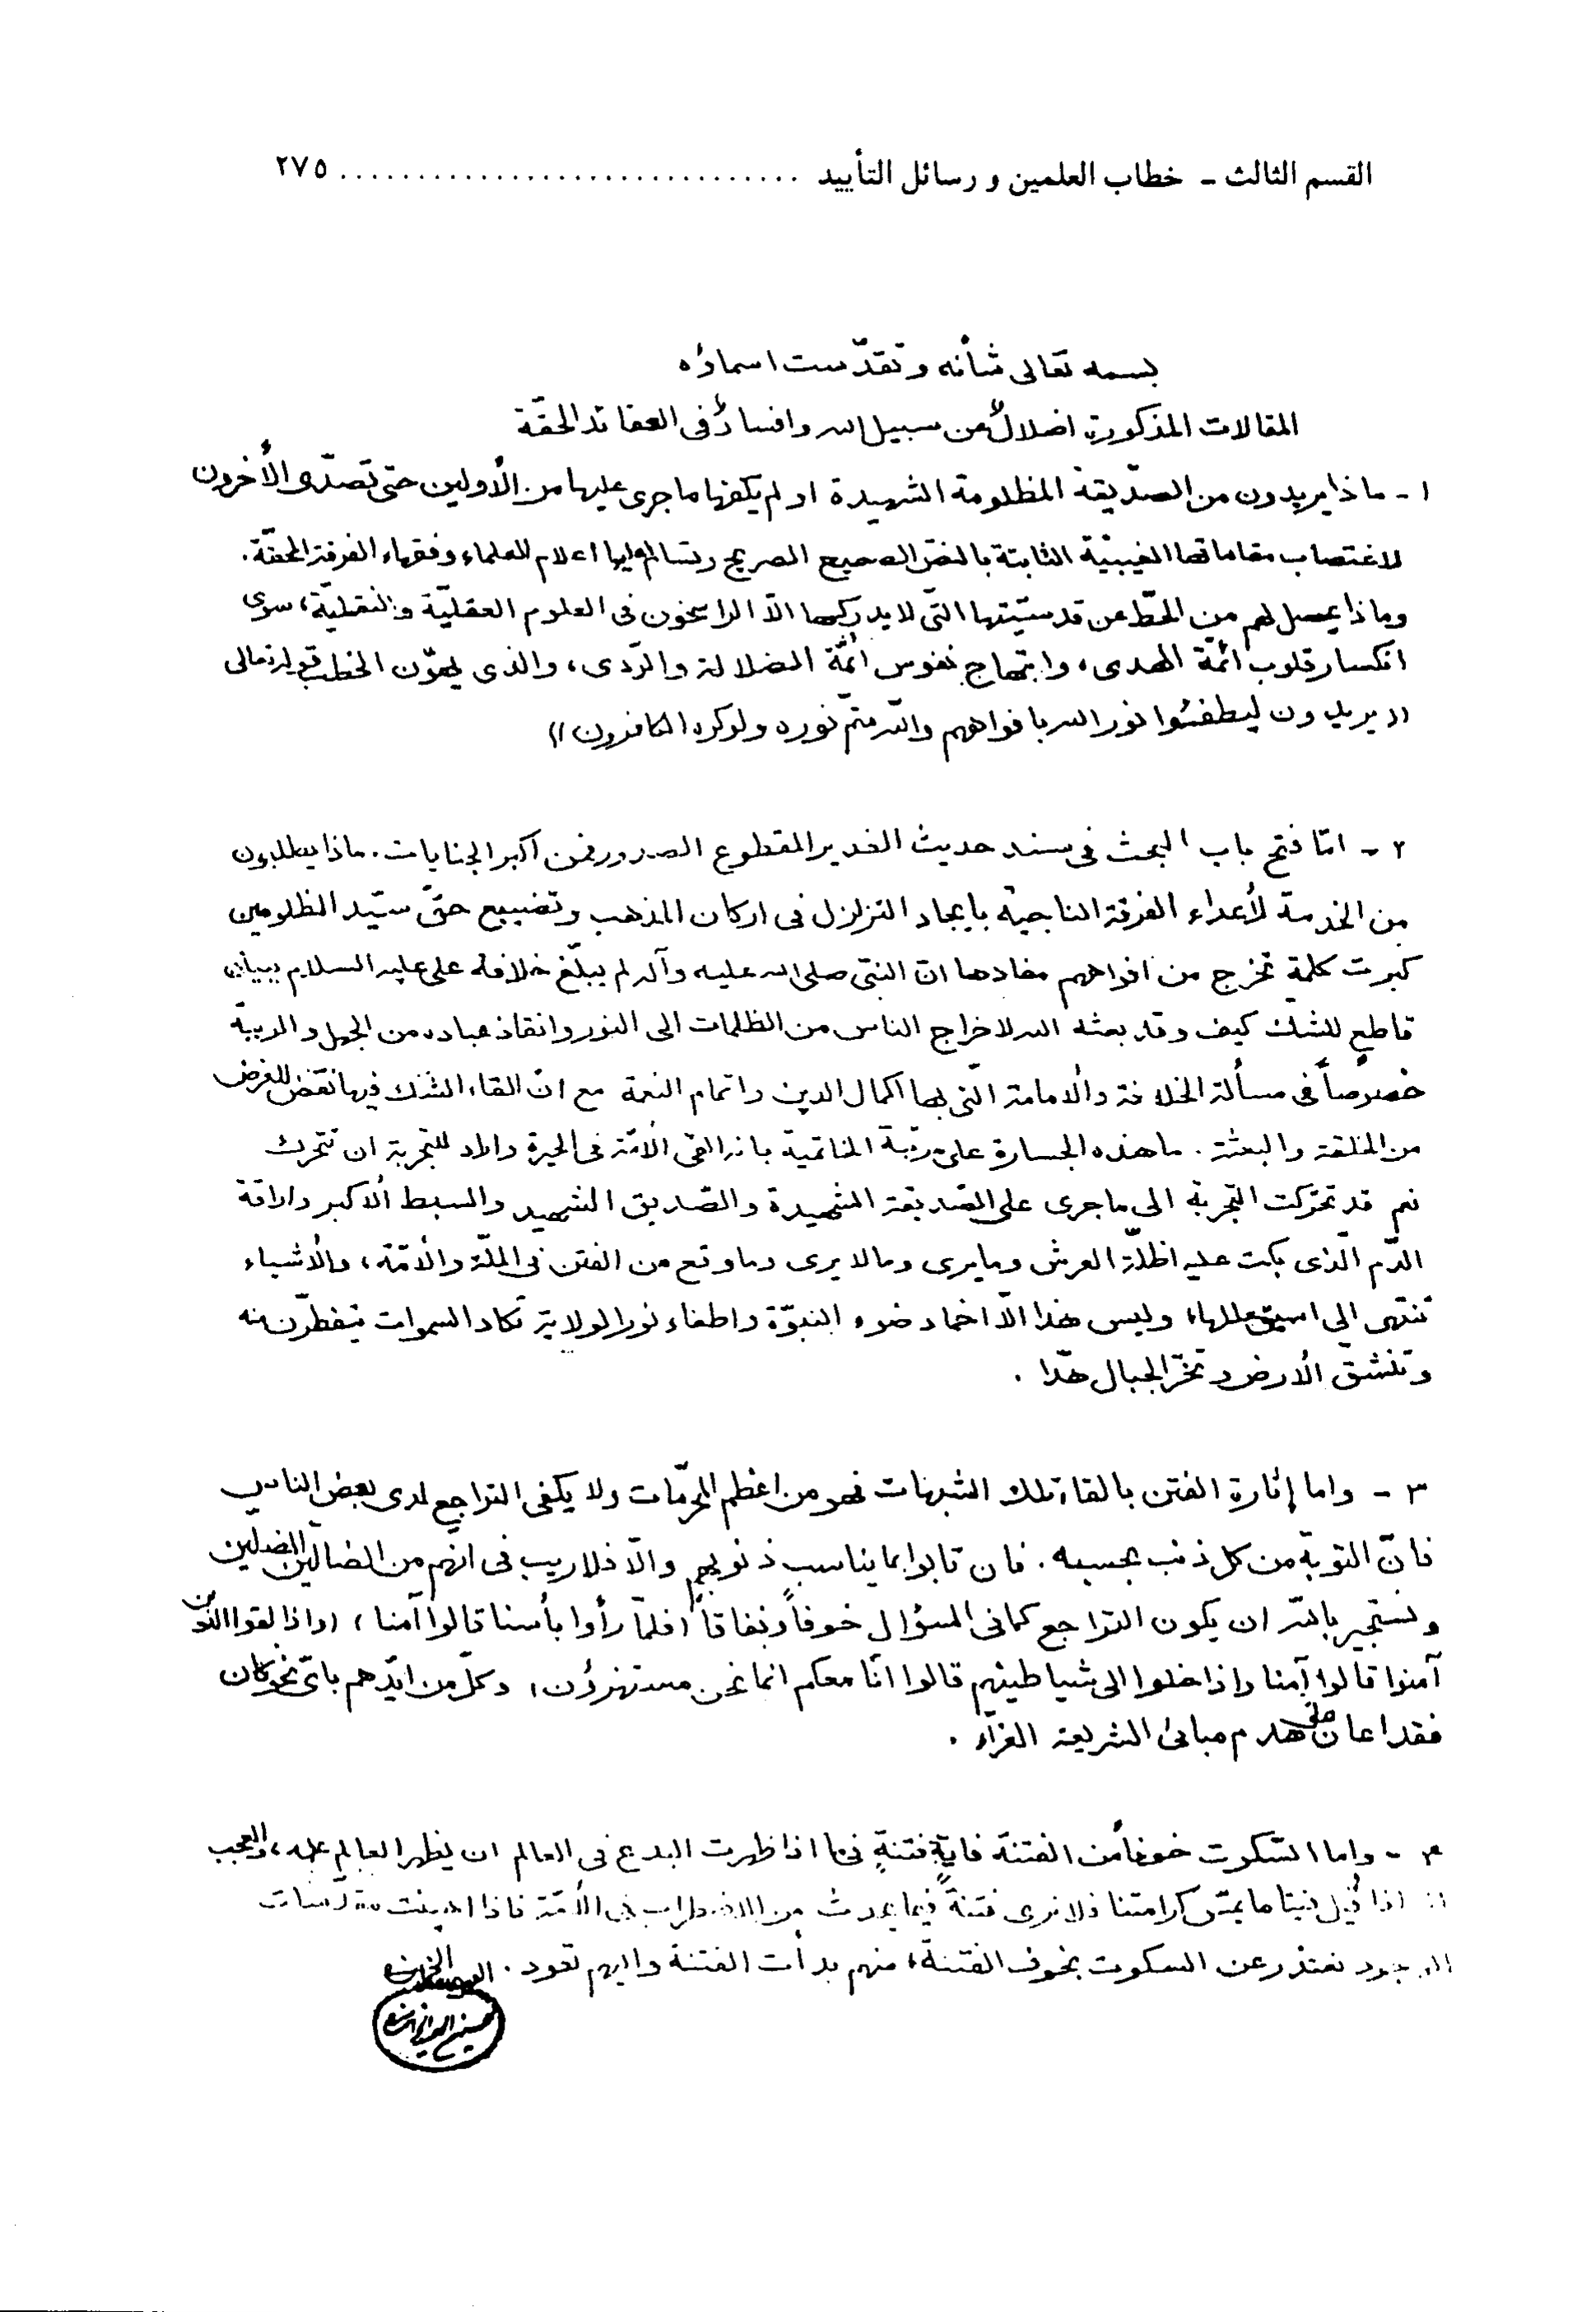 القسم الثالث ـ خطاب العلمين و رسائل التأييد .............................. ٢٧٥
بسمه تعالى شأنه وتقدّست اسماؤه
المقالات المذكورة اضلالٌ عن سبيل الله وافسادٌ فى العقائد الحقّة
١ - ماذا يريدون من الصدّيقة المظلومة الشهيدة او لم يكفها ما جرى عليها من الأولين حتى تصدّى الأخرون
لاغتصاب مقاماتها الغيبيّة الثابتة بالنصّ الصحيح الصريح وتسالم عليها اعلام العلماء وفقهاء الفرقة المحقّة.
وماذا يحصل لهم من الحطّ عن قدسيّتها التّى لا يدركها الاّ الراسخون فى العلوم العقليّة والنقليّة، سوى
انكسار قلوب أئمّة الهدى، وابتهاج نفوس أئمّة الضلالة والرّدى، والذى يهوّن الخطب قوله تعالى
(( يريدون ليطفئوا نور الله بافواههم والله متمّ نوره ولو كره الكافرون ))
٢ - امّا فتح باب البحث فى سند حديث الغدير المقطوع الصدور فمن اكبر الجنايات. ماذا يطلبون
من الخدمة لأعداء الفرقة الناجية بايجاد التزلزل فى اركان المذهب وتضييع حقّ سيّد المظلومين
كبرت كلمة تخرج من افواههم مفادها انّ النبّى صلى الله عليه وآله لم يبلّغ خلافة على عليه السلام ببيان
قاطع للشك كيف وقد بعثه الله لاخراج الناس من الظلمات الى النور وانقاذ عباده من الجهل والريبة
خصوصاً فى مسألة الخلافة والامامة التّى بها اكمال الدين واتمام النعمة مع انّ القاء الشك فيها نقض للغرض
من الخلقة والبعثة. ما هذه الجسارة على رتبة الخاتمية بانه القى الأمّة فى الحيرة واراد للتجربة ان تتحرك
نعم قد تحرّكت التجربة الى ما جرى على الصّديقة الشهيدة والصّديق الشهيد والسبط الأكبر واراقة
الدّم الّذى بكت عليه اظلّة العرش وما يرى وما لا يرى وما وقع من الفتن فى الملّة والأمّة، والأشياء
تنتهى الى اسبق عللها، وليس هذا الاّ اخماد ضوء النبوّة واطفاء نور الولاية تكاد السموات يتفطّرن منه
وتنشقّ الأرض وتخرّ الجبال هدّا .
٣ - واما إثارة الفتن بالقاء تلك الشبهات فهو من اعظم المحرّمات ولا يكفى التراجع لدى بعض الناس
فانّ التوبة من كل ذنب بحسبه. فان تابوا بما يناسب ذنوبهم والاّ فلا ريب فى انّهم من الضالّين المضلّين
ونستجير بالله ان يكون التراجع كما فى السؤال خوفاً ونفاقاً (فلمّا رأوا بأسنا قالوا آمنا) (واذا لقوا الذين
آمنوا قالوا آمنا واذا خلوا الى شياطينهم قالوا انّا معكم انما نحن مستهزؤن) وكلّ من ايّدهم باىّ نحو كان
فقد اعان على هدم مبانى الشريعة الغرّاء .
٤ - واما السّكوت خوفاً من الفتنة فايّة فتنةٍ فى ما اذا ظهرت البدع فى العالم ان يظهر العالم علمه، والعجب
انّا اذا قيل فينا ما يمسّ كرامتنا فلا نرى فتنةً فيما يحدث من الاضطراب فى الأمّة فاذا اهينت مقدّسات
الوجود نعتذر عن السكوت بخوف الفتنة، منهم بدأت الفتنة واليهم تعود .